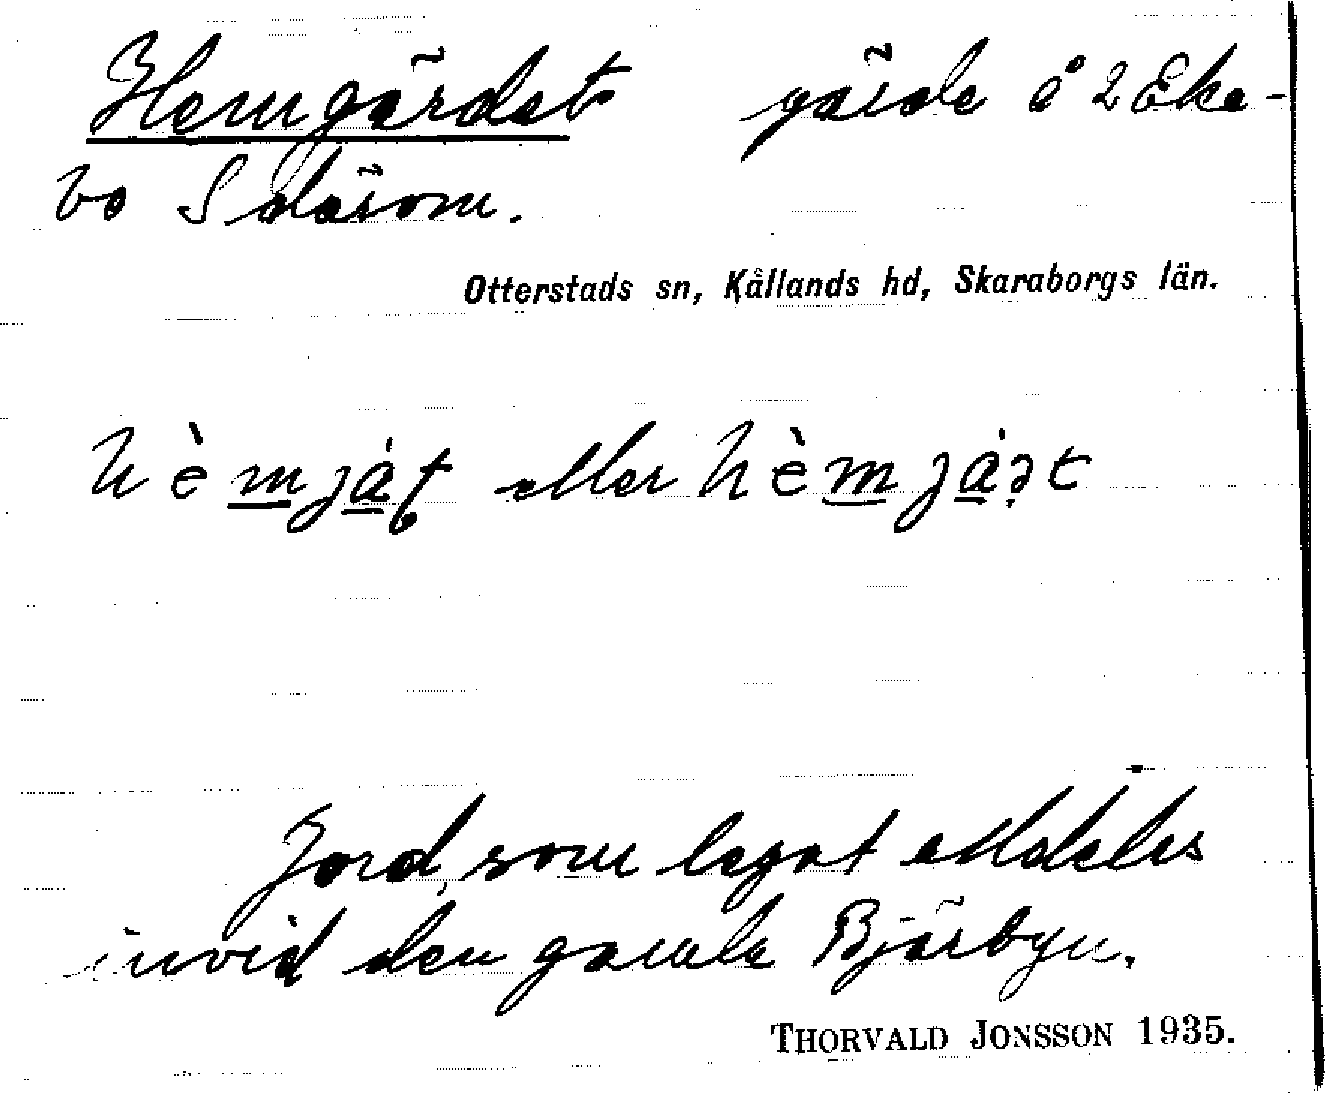 Hemgärdet gärde å 2 Eke-
bo S därom.
Otterstads sn, Kållands hd, Skaraborgs län.
eller
Jord, som legat alldeles
invid den gamla Bjärbyn.
THORVALD JONSSON 1935.